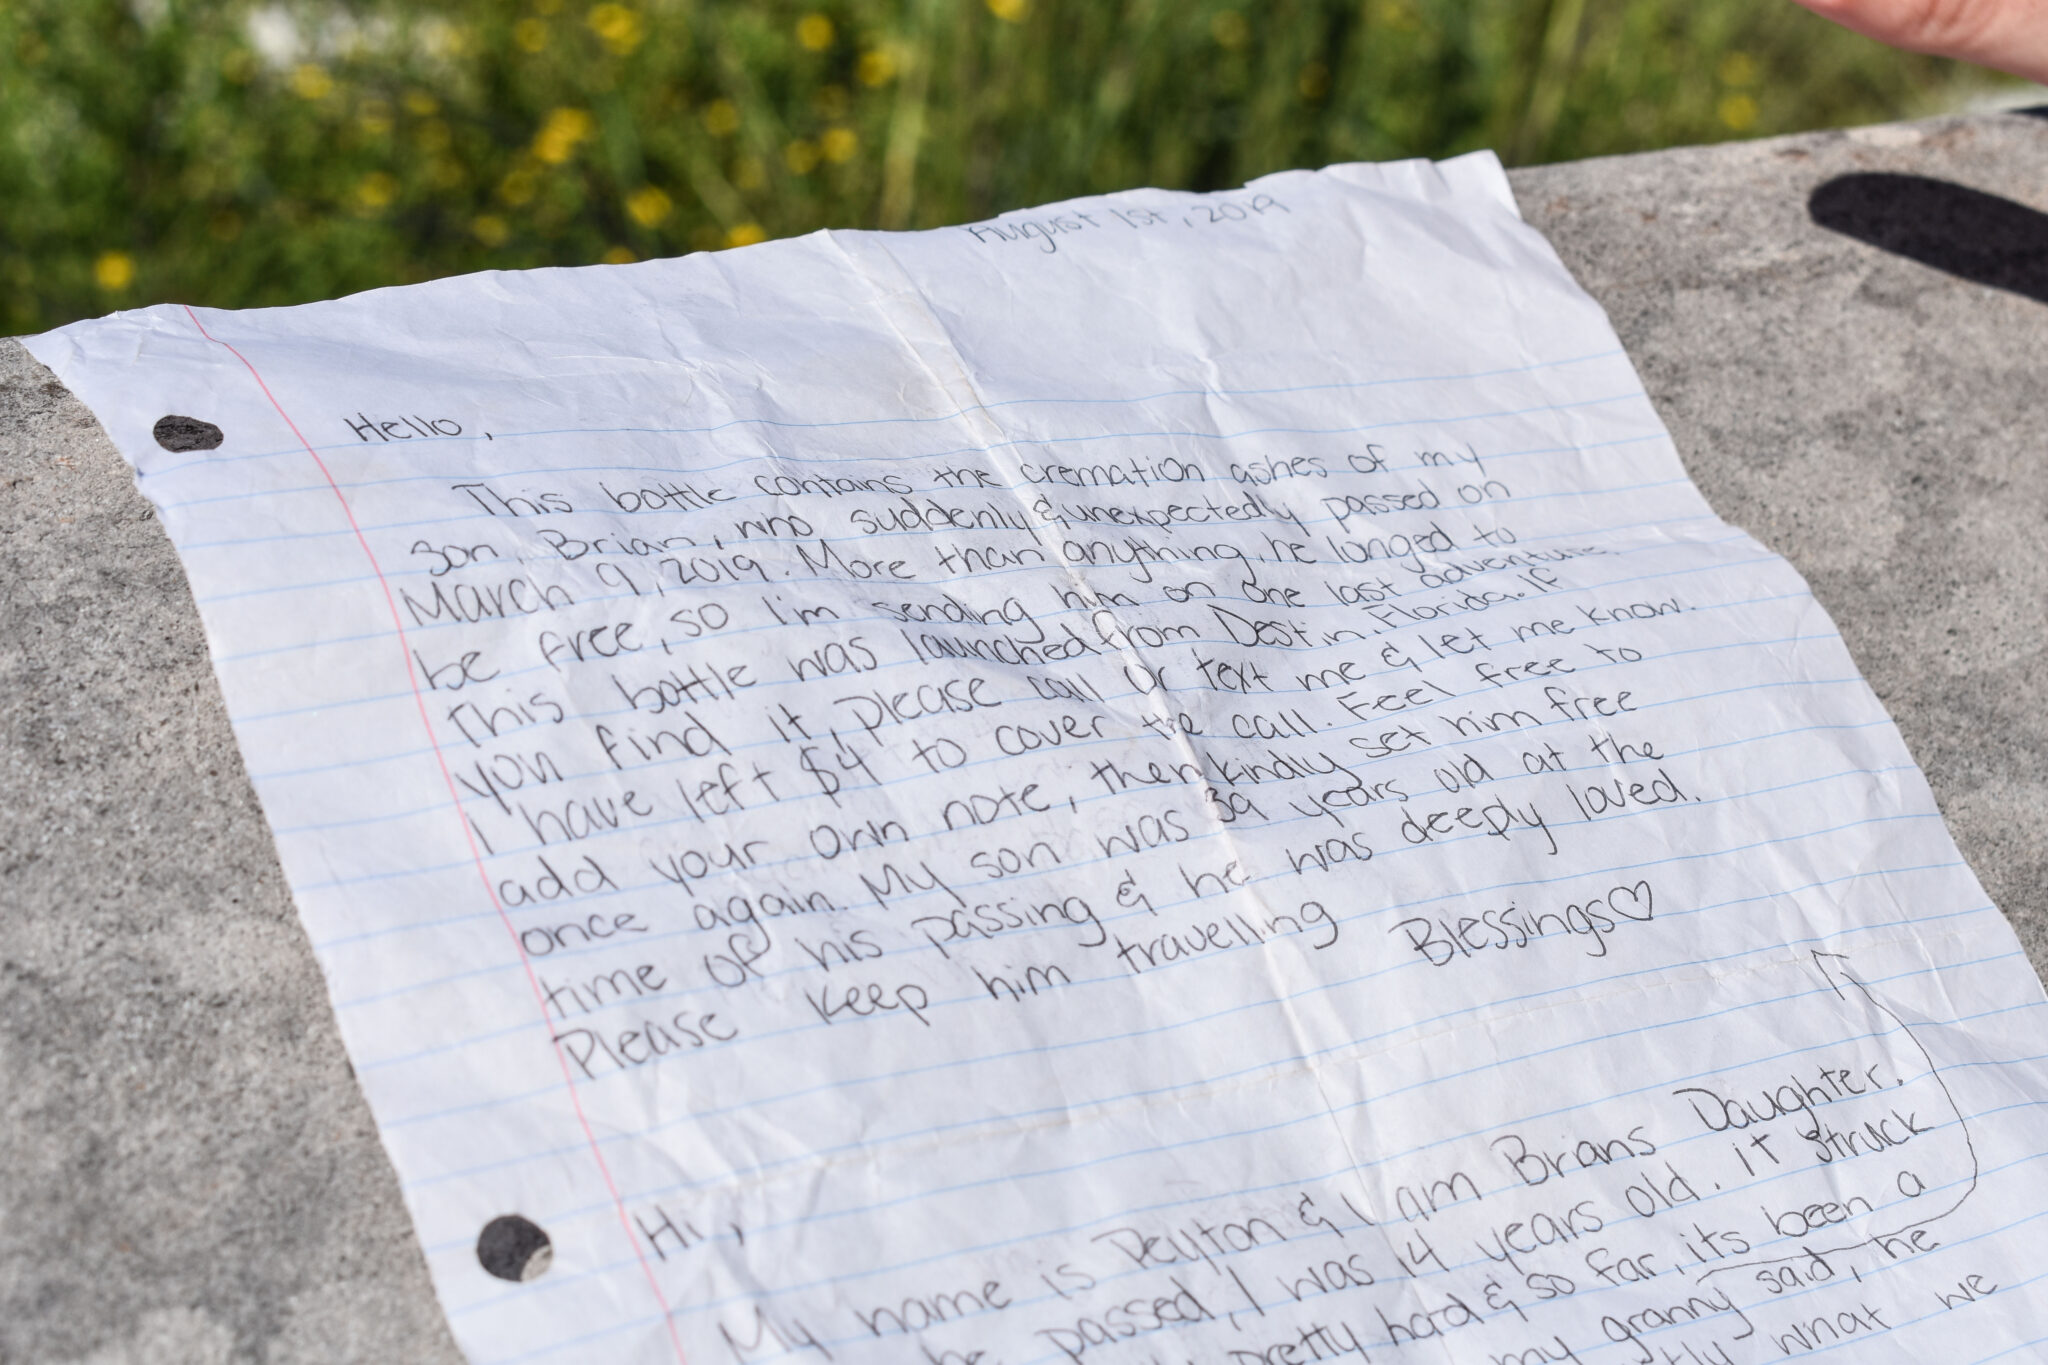 August 1st, 2019
Hello,
This bottle contains the cremation ashes of my
son, Brian, who suddenly & unexpectedly passed on
March 9, 2019. More than anything, he longed to
be free, so I'm sending him on one last adventure.
This bottle was launched from Destin, Florida. If
you find it, please call or text me & let me know.
I have left $4 to cover the call. Feel free to
add your own note, then kindly set him free
once again. My son was 39 years old at the
time of his passing & he was deeply loved.
Please keep him travelling
Blessings♡
Hi,
My name is Peyton & I am Brians Daughter.
he passed, I was 14 years old. it struck
pretty hard & so far, its been a
my granny said, he
what we